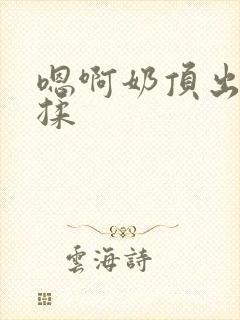 嗯啊奶頂出
揉
雲海詩